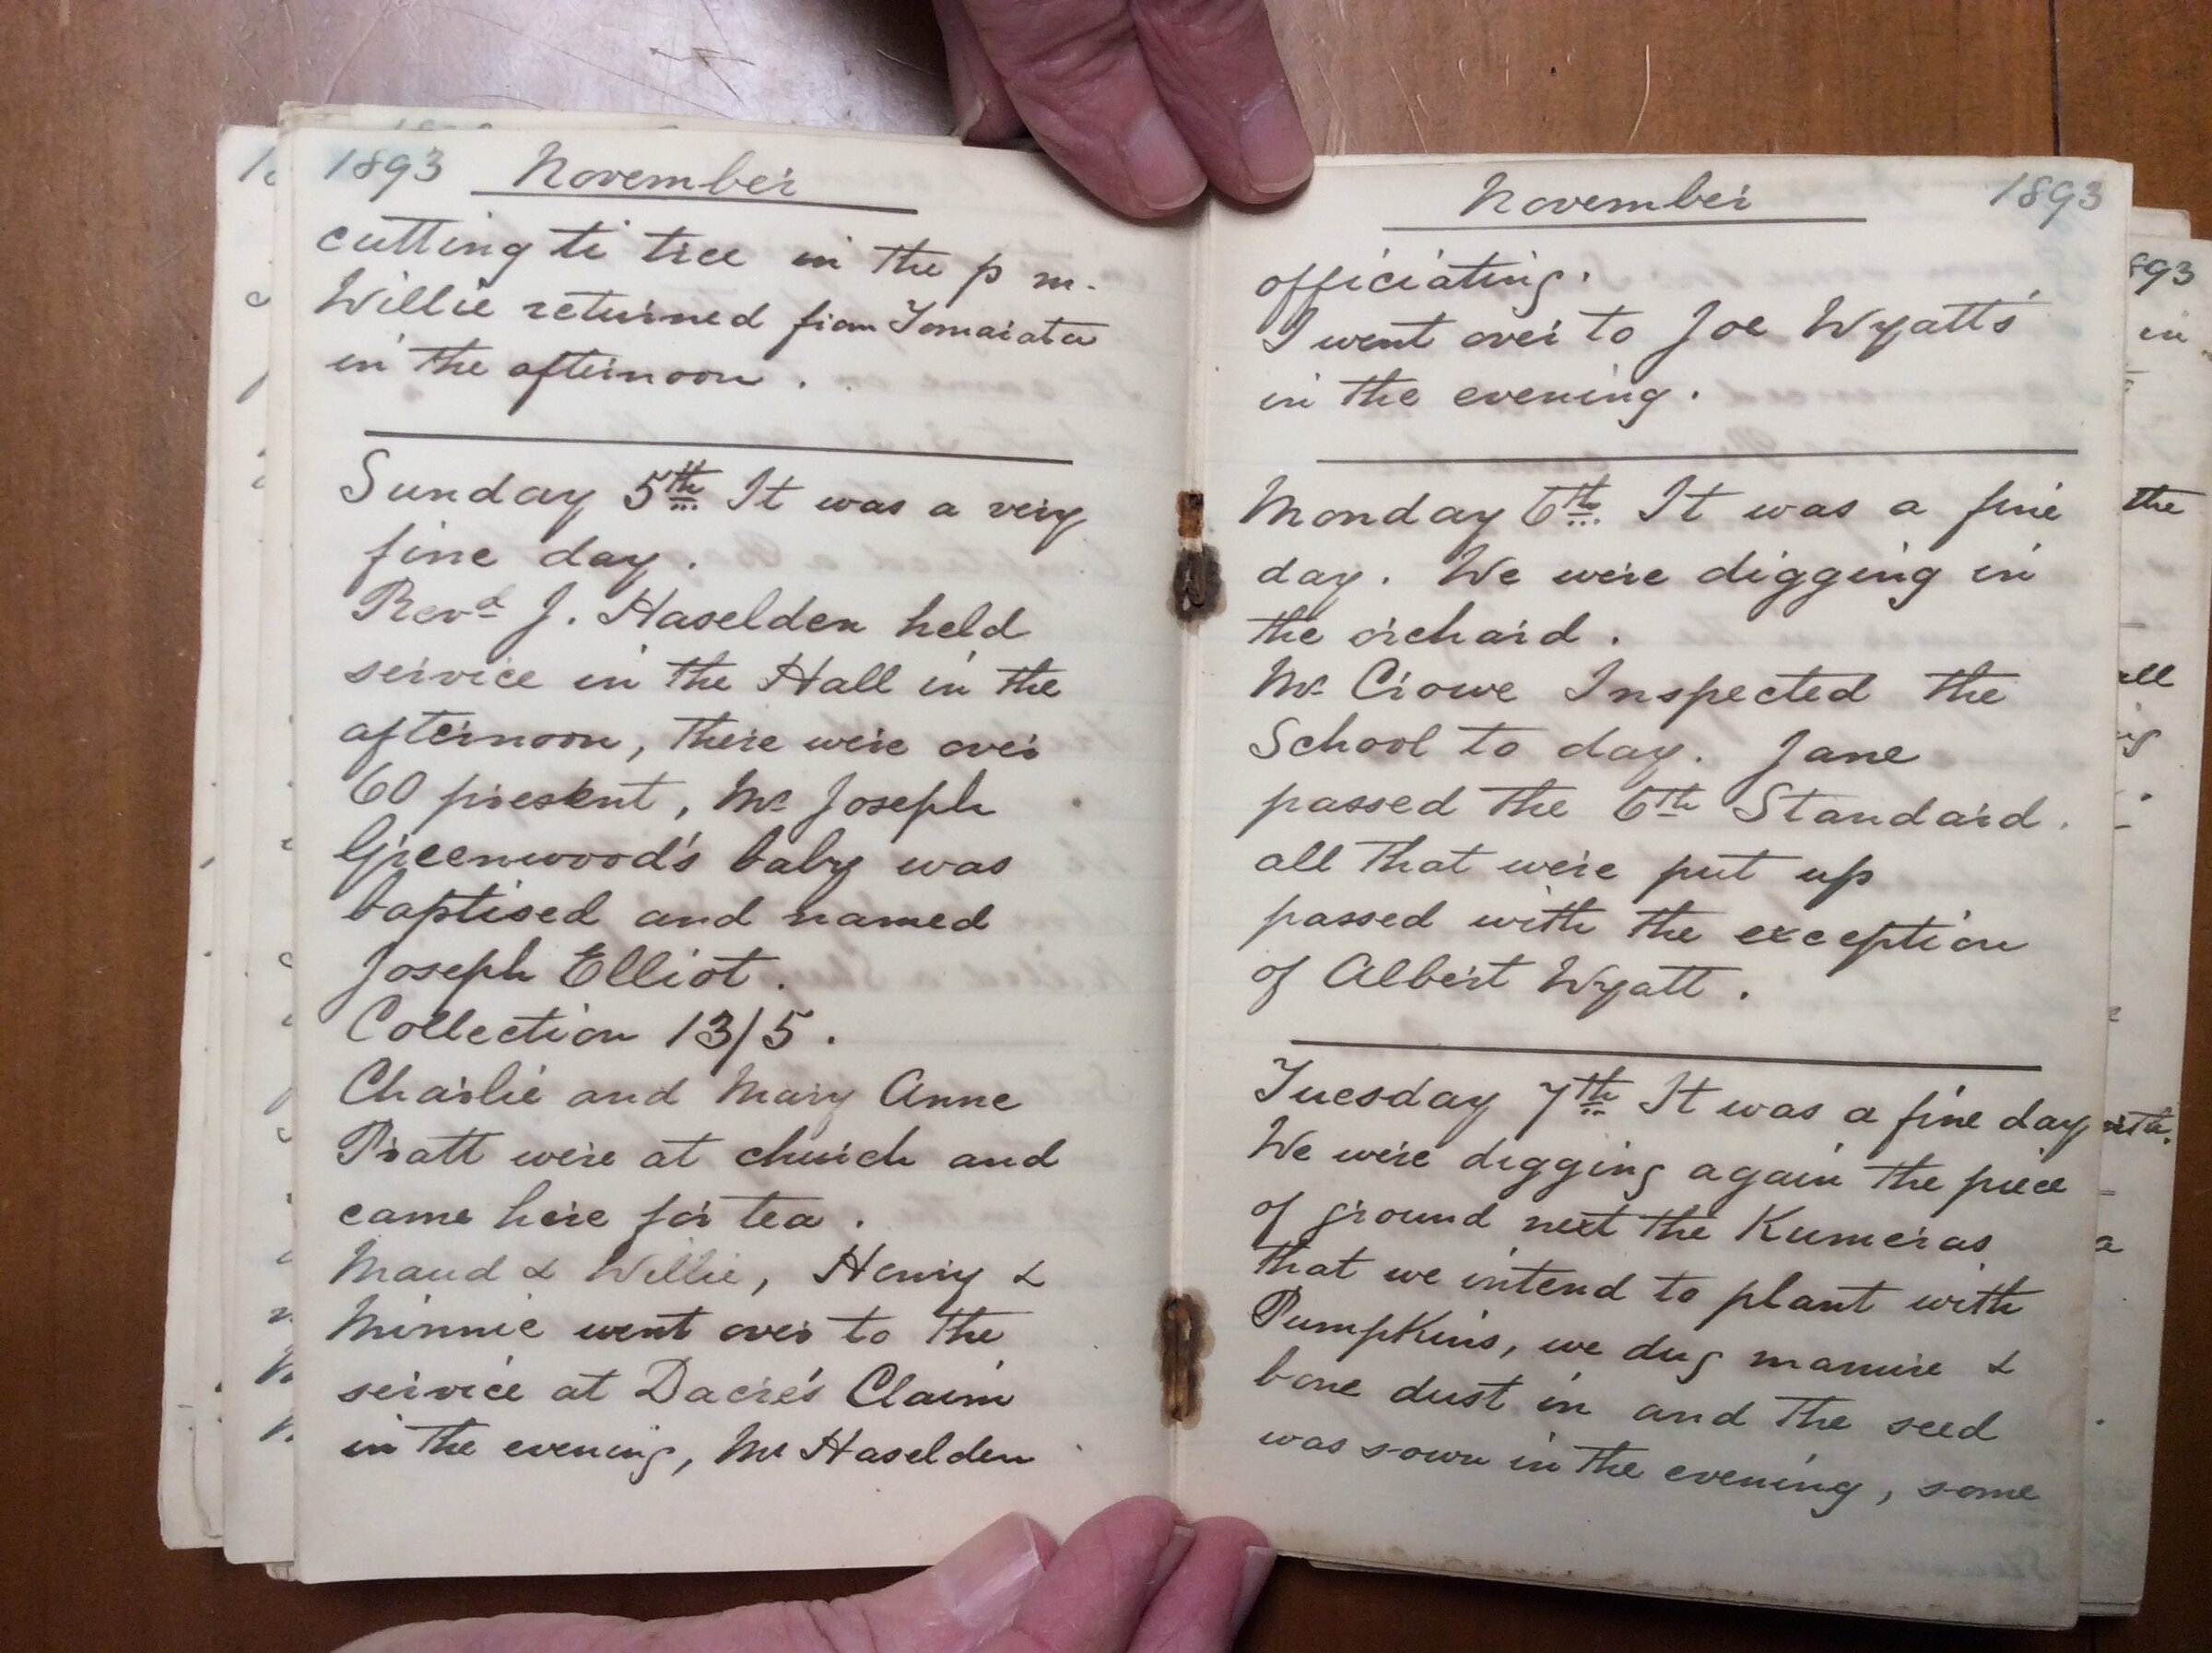 1893 November
cutting ti tree in the p m.
Willie returned from Tomarata
in the afternoon.
Sunday 5th It was a very
fine day.
Revd J. Haselden held
service in the Hall in the
afternoon, there were over
60 present, Mr Joseph
Greenwood's baby was
baptised and named
Joseph Elliot.
Collection 13/5.
Charlie and Mary Anne
Pratt were at church and
came here for tea.
Maud & Willie, Henry &
Minnie went over to the
service at Dacre's Claim
in the evening, Mr Haselden
November 1893
officiating.
I went over to Joe Wyatt's
in the evening.
Monday 6th It was a fine
day. We were digging in
the orchard.
Mr Crowe Inspected the
School to day. Jane
passed the 6th Standard.
all that were put up
passed with the exception
of Albert Wyatt.
Tuesday 7th It was a fine day
We were digging again the piece
of ground next the Kumeras
that we intend to plant with
Pumpkins, we dug manure &
bone dust in and the seed
was sown in the evening, some
893
in
the